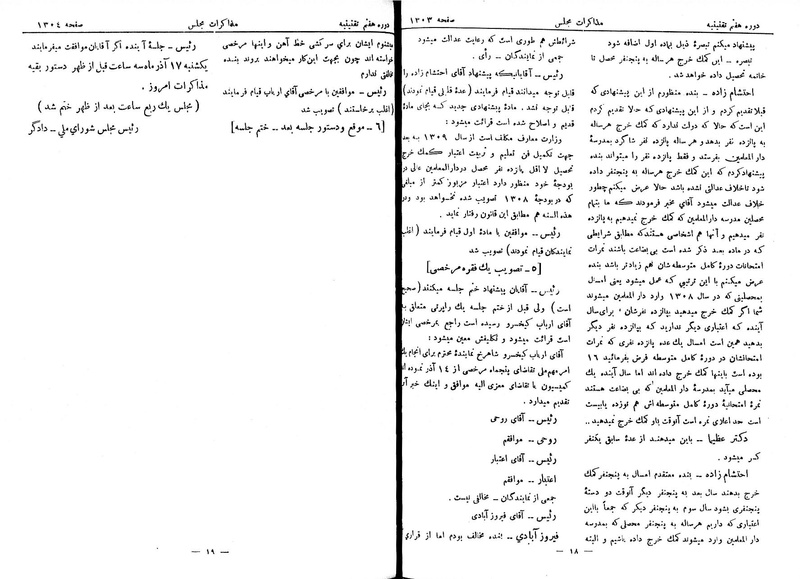 دوره هفتم تقنینیه
مذاکرات مجلس
صفحه ۱۳۰۳
پیشنهاد میکنم تبصرهٔ ذیل بماده اول اضافه شود
تبصره ــ این کمك خرج هرساله به پنجنفر محصل تا
خاتمه تحصیل داده خواهد شد.
احتشام زاده ــ بنده منظورم از این پیشنهادی که
قبلا تقدیم کردم و از این پیشنهادی که حالا تقدیم کردم
این است که حالا که دولت ندارد که کمك خرج هرساله
به پانزده نفر بدهد و هرساله پانزده نفر شاگرد بمدرسهٔ
دارالمعلمین بفرستد و فقط پانزده نفر را میتواند بنده
پیشنهاد کردم که این کمك خرج هرساله به پنجنفر داده
شود تا خلاف عدالتی نشده باشد حالا عرض میکنم چطور
خلاف عدالت میشود آقای مخبر فرمودند که ما بتمام
محصلین مدرسه دارالمعلمین که کمك خرج نمیدهیم به پانزده
نفر میدهیم و آنها هم اشخاصی هستند که مطابق شرایطی
که در ماده بعد ذکر شده است بی بضاعت باشند نمرات
امتحانات دورهٔ کامل متوسطه شان هم زیادتر باشد بنده
عرض میکنم با این ترتیبی که عمل میشود یعنی امسال
بمحصلینی که در سال ۱۳۰۸ وارد دار المعلمین میشوند
شما اگر کمك خرج میدهید بپانزده نفرشان برای سال
آینده که اعتباری دیگر ندارید که بپانزده نفر دیگر
بدهید همین است امسال یك عده پانزده نفری که نمرات
امتحانشان در دورهٔ کامل متوسطه فرض بفرمائید ۱۶
بوده است باینها کمك خرج داده اند اما سال آینده یك
محصلی میآید بمدرسهٔ دار المعلمین که بی بضاعت هستند
نمرهٔ امتحانیهٔ دورهٔ کامل متوسطه اش هم نوزده یا بیست
است حد اعلای نمره است آنوقت باو کمك خرج نمیدهید ..
دکتر عظیما ــ باین میدهند از عدهٔ سابق یکنفر
کسر میشود .
احتشام زاده ــ بنده معتقدم امسال به پنجنفر کمك
خرج بدهند سال بعد به پنجنفر دیگر آنوقت دو دستهٔ
پنجنفری بشود سال سوم به پنجنفر دیگر که جمعاً باین
اعتباری که داریم هرساله به پنجنفر محصلی که بمدرسه
دار المعلمین وارد میشود کمك خرج داده باشیم و البته
ــ ۱۸ ــ
شرائطش هم طوری است که رعایت عدالت میشود
جمعی از نمایندگان ــ رأی .
رئیس ــ آقایانیکه پیشنهاد آقای احتشام زاده را
قابل توجه میدانند قیام فرمایند (عدهٔ قلیلی قیام نمودند)
قابل توجه نشد . مادهٔ پیشنهادی جدید که بجای مادهٔ
قدیم و اصلاح شده است قرائت میشود :
وزارت معارف مکلف است از سال ۱۳۰۹ به بعد
جهت تکمیل فن تعلیم و تربیت اعتبار کمك خرج
تحصیل لااقل پانزده نفر محصل در دارالمعلمین عالی در
بودجهٔ خود منظور دارد اعتبار مزبور کمتر از مبلغی
که در بودجهٔ ۱۳۰۸ تصویب شده نخواهد بود و در
هذه السنه هم مطابق این قانون رفتار نماید .
رئیس ــ موافقین با مادهٔ اول قیام فرمایند ( اغلب
نمایندگان قیام نمودند) تصویب شد
[ ۵ ــ تصویب یك فقره مرخصی ]
رئیس ــ آقایان پیشنهاد ختم جلسه میکنند (صحیح
است ) ولی قبل از ختم جلسه یك راپرتی متعلق به
آقای ارباب کیخسرو رسیده است راجع بمرخصی ایشان
است قرائت میشود و تکلیفش معین میشود :
آقای ارباب کیخسرو شاهرخ نمایندهٔ محترم برای انجام یك
امر مهم ملی تقاضای پنجماه مرخصی از ۱۴ آذر نموده اند
کمیسیون با تقاضای معزی الیه موافق و اینك خبر آن
تقدیم میدارد .
رئیس ــ آقای روحی
روحی ــ موافقم
رئیس ــ آقای اعتبار
اعتبار ــ موافقم
جمعی از نمایندگان ــ مخالفی نیست .
رئیس ــ آقای فیروز آبادی
فیروز آبادی ــ بنده مخالف بودم اما از قراری
دوره هفتم تقنینیه
مذاکرات مجلس
صفحه ۱۳۰۴
میشنوم ایشان برای سرکشی خط آهن و اینها مرخصی
خواسته اند چون بجهت این کار میخواهند بروند بنده
مخالفتی ندارم
رئیس ــ موافقین با مرخصی آقای ارباب قیام فرمایند
(اغلب برخاستند) تصویب شد
[ ۶ ــ موقع و دستور جلسه بعد ــ ختم جلسه ]
رئیس ــ جلسهٔ آینده اگر آقایان موافقت میفرمایند
یکشنبه ۱۷ آذر ماه سه ساعت قبل از ظهر دستور بقیه
مذاکرات امروز .
( مجلس یك ربع ساعت بعد از ظهر ختم شد )
رئیس مجلس شورای ملی ــ دادگر
ــ ۱۹ ــ